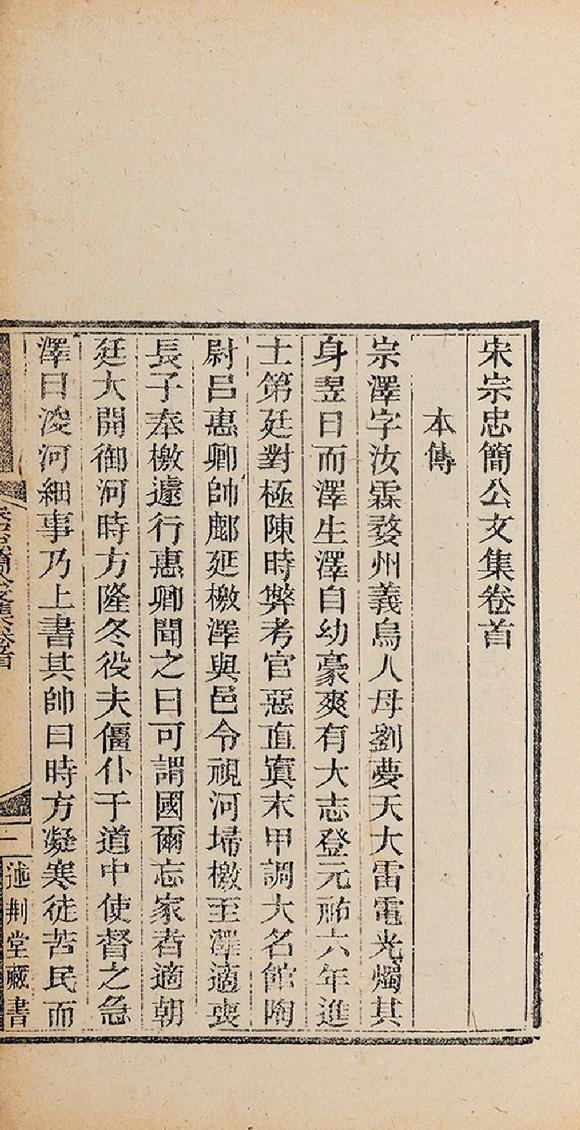 宋宗忠簡公文集卷首
本傳
宗澤字汝霖婺州義烏人母劉夢天大雷電光燭其
身翌日而澤生澤自幼豪爽有大志登元祐六年進
士第廷對極陳時弊考官惡直寘末甲調大名館陶
尉呂惠卿帥鄜延檄澤與邑令視河埽檄至澤適喪
長子奉檄遽行惠卿聞之曰可謂國爾忘家者適朝
廷大開御河時方隆冬役夫僵仆于道中使督之急
澤曰浚河細事乃上書其帥曰時方凝寒徒苦民而
宋宗忠簡公文集卷首
一
述荆堂藏書